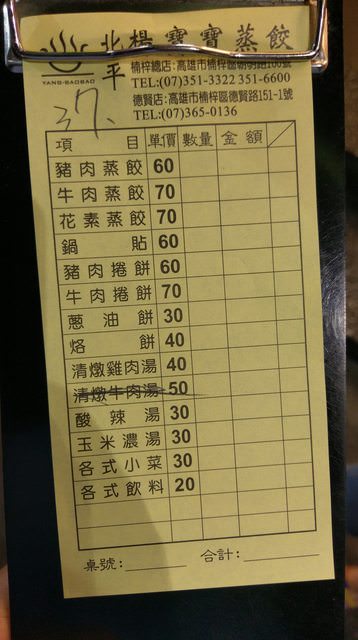 北平楊寶寶蒸餃
YANG-BAOBAO
楠梓總店:高雄市楠梓區朝明路106號
TEL:(07)351-3322 351-6600
德賢店:高雄市楠梓區德賢路151-1號
TEL:(07)365-0136
37.
項目 單價 數量 金額
豬肉蒸餃 60
牛肉蒸餃 70
花素蒸餃 70
鍋貼 60
豬肉捲餅 60
牛肉捲餅 70
蔥油餅 30
烙餅 40
清燉雞肉湯 40
清燉牛肉湯 50
酸辣湯 30
玉米濃湯 30
各式小菜 30
各式飲料 20
桌號:
合計: